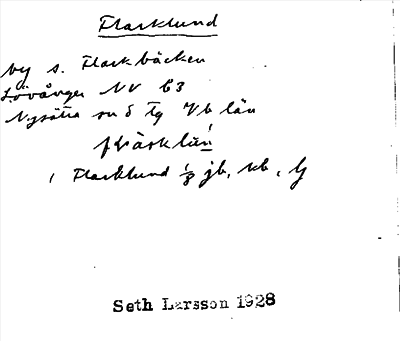 Flarklund
by s. Flarkbäcken
Lövånger NV C3
Nysätra snd Tg Vb län
Flarklund jb, kb, lj
Seth Larsson 1928